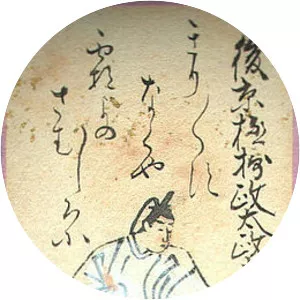 後京極摂政太政
きり〱す
なくや
霜よの
さむしろに